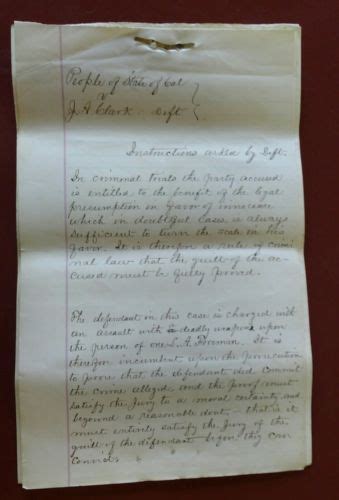 People of State of Cal
v
J. A. Clark. Deft
Instructions asked by Deft.
In criminal trials the party accused
is entitled to the benefit of the legal
presumption in favor of innocence
which in doubtful cases is always
sufficient to turn the scale in his
favor. It is therefor a rule of crimi
nal law that the guilt of the ac-
cused must be fully proved.
The defendant in this case is charged with
an assault with a deadly weapon upon
the person of one L. A. Forman. It is
therefor incumbent upon the prosecution
to prove that the defendant did commit
the crime alleged and the proof must
satisfy the jury to a moral certainty and
beyound a reasonable dout - that is it
must entirely satisfy the jury of the
guilt of the defendant before they can
convict.